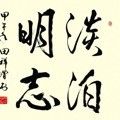 淡泊
明志
甲午冬田祥